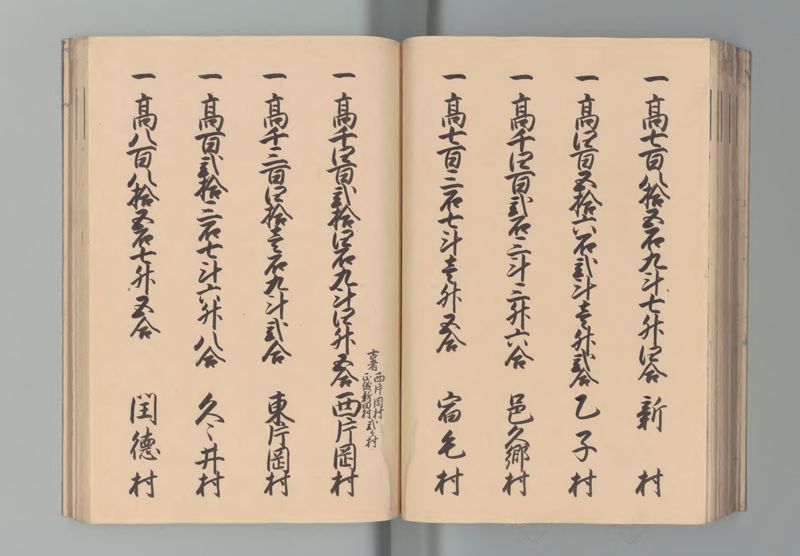 一高七百八拾五石九斗七升四合 新村
一高四百五拾六石弐斗壱升弐合 乙子村
一高千四百弐石三斗三升六合 邑久郷村
一高七百三石七斗壱升五合 宿毛村
古者西片岡村
正儀新田村弐ヶ村
一高千四百弐拾四石九斗四升五合 西片岡村
一高千三百四拾壱石九斗弐合 東片岡村
一高百弐拾三石七斗六升八合 久々井村
一高八百八拾五石七升五合 閏徳村